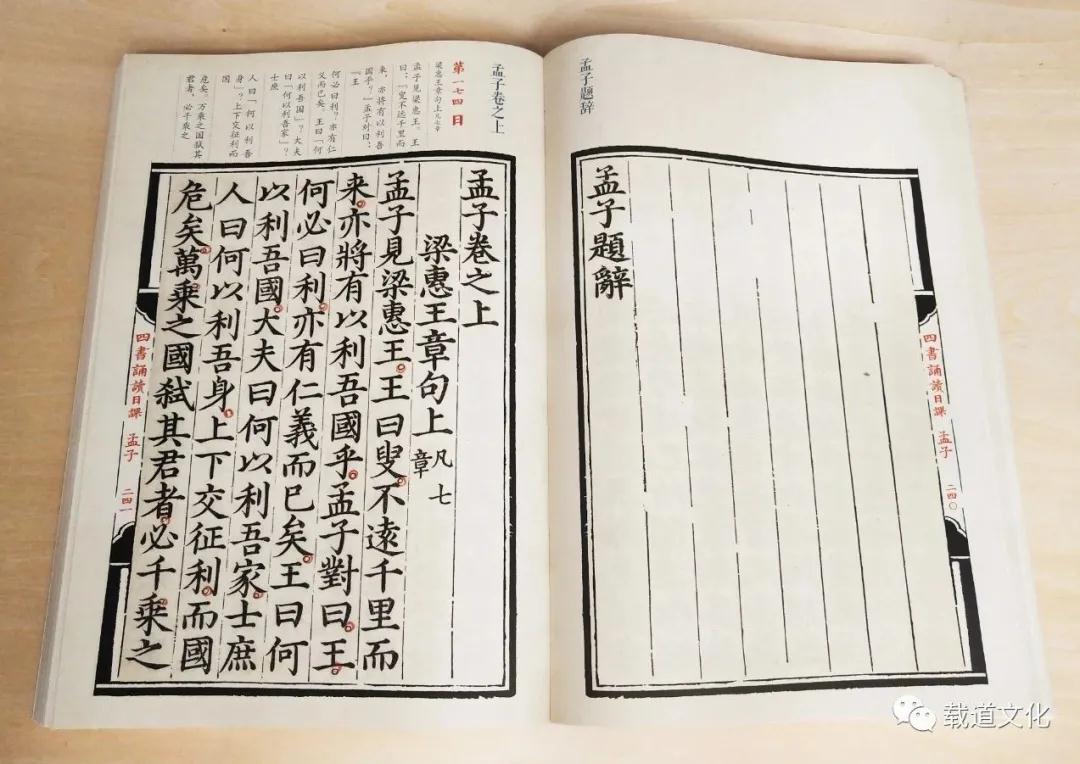 孟子题辞
孟子題辭
四書誦讀日課 孟子 二四〇
孟子卷之上
第一七四日
梁惠王章句上凡七章
孟子见梁惠王。王
曰：「叟不远千里而
来，亦将有以利吾
国乎？」孟子对曰：
「王
何必曰利？亦有仁
义而已矣。王曰「何
以利吾国」？大夫
曰「何以利吾家」？
士庶
人曰「何以利吾
身」？上下交征利而
国
危矣。万乘之国弑其
君者，必千乘之
孟子卷之上
梁惠王章句上 凡七章
孟子見梁惠王王曰叟不遠千里而
來亦將有以利吾國乎孟子對曰王
何必曰利亦有仁義而已矣王曰何
以利吾國大夫曰何以利吾家士庶
人曰何以利吾身上下交征利而國
危矣萬乘之國弑其君者必千乘之
四書誦讀日課 孟子 二四一
载道文化